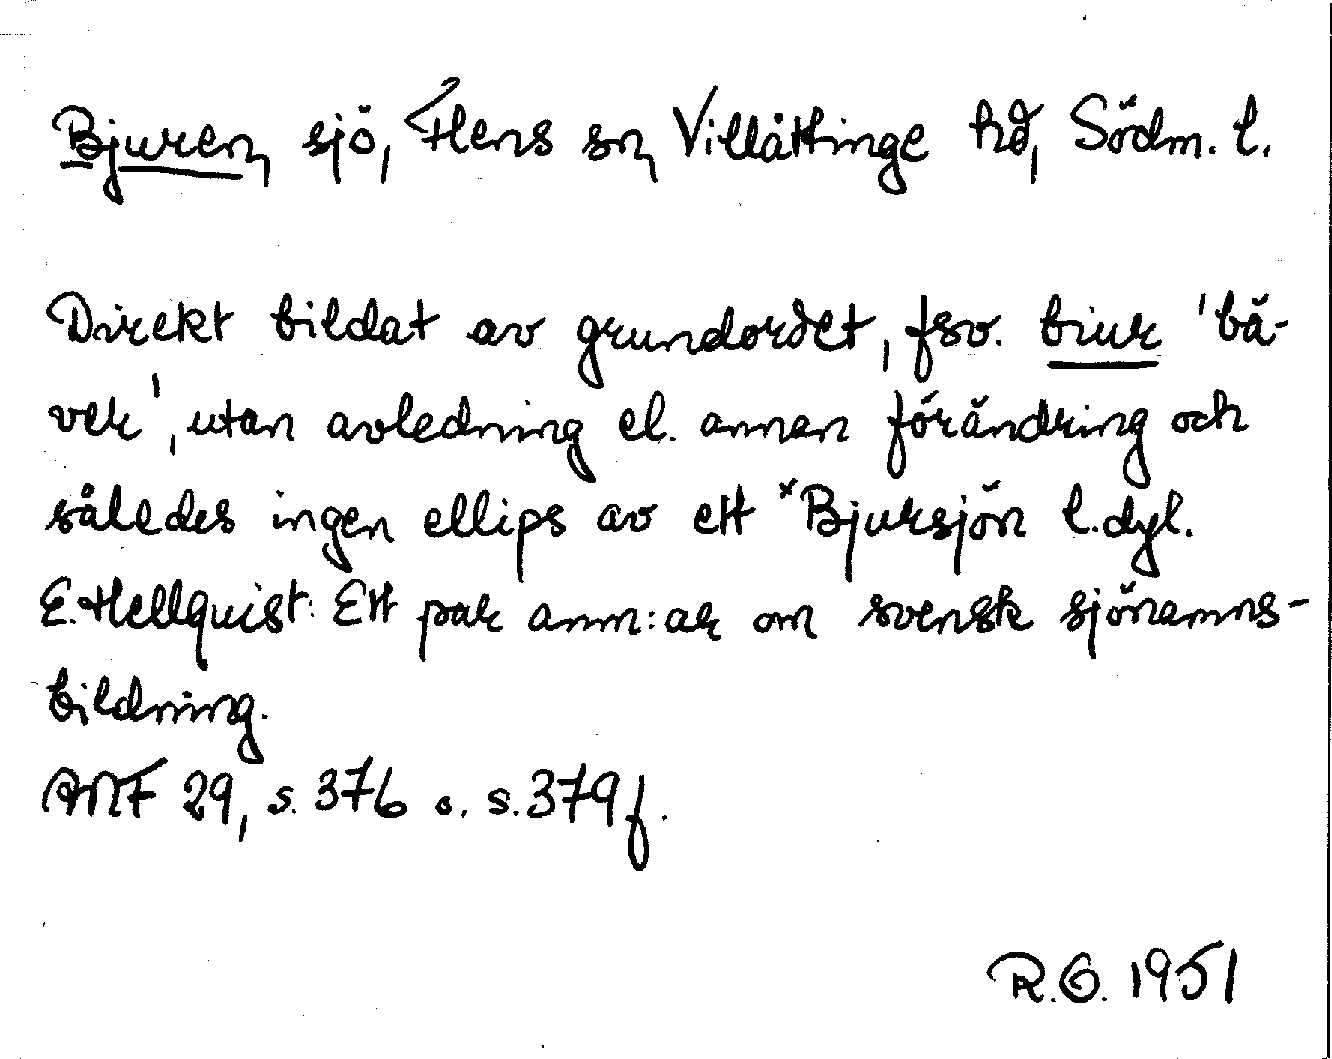 Bjuren, sjö, Flens sn, Villåttinge hd, Södm. l.
Direkt bildat av grundordet, fsv. biur 'bä-
ver', utan avledning el. annan förändring och
således ingen ellips av ett *Bjursjön l.dyl.
E. Hellquist: Ett par anm:ar om svensk sjönamns-
bildning.
ANF 29, s. 376 o. s. 379 f.
R.O. 1951